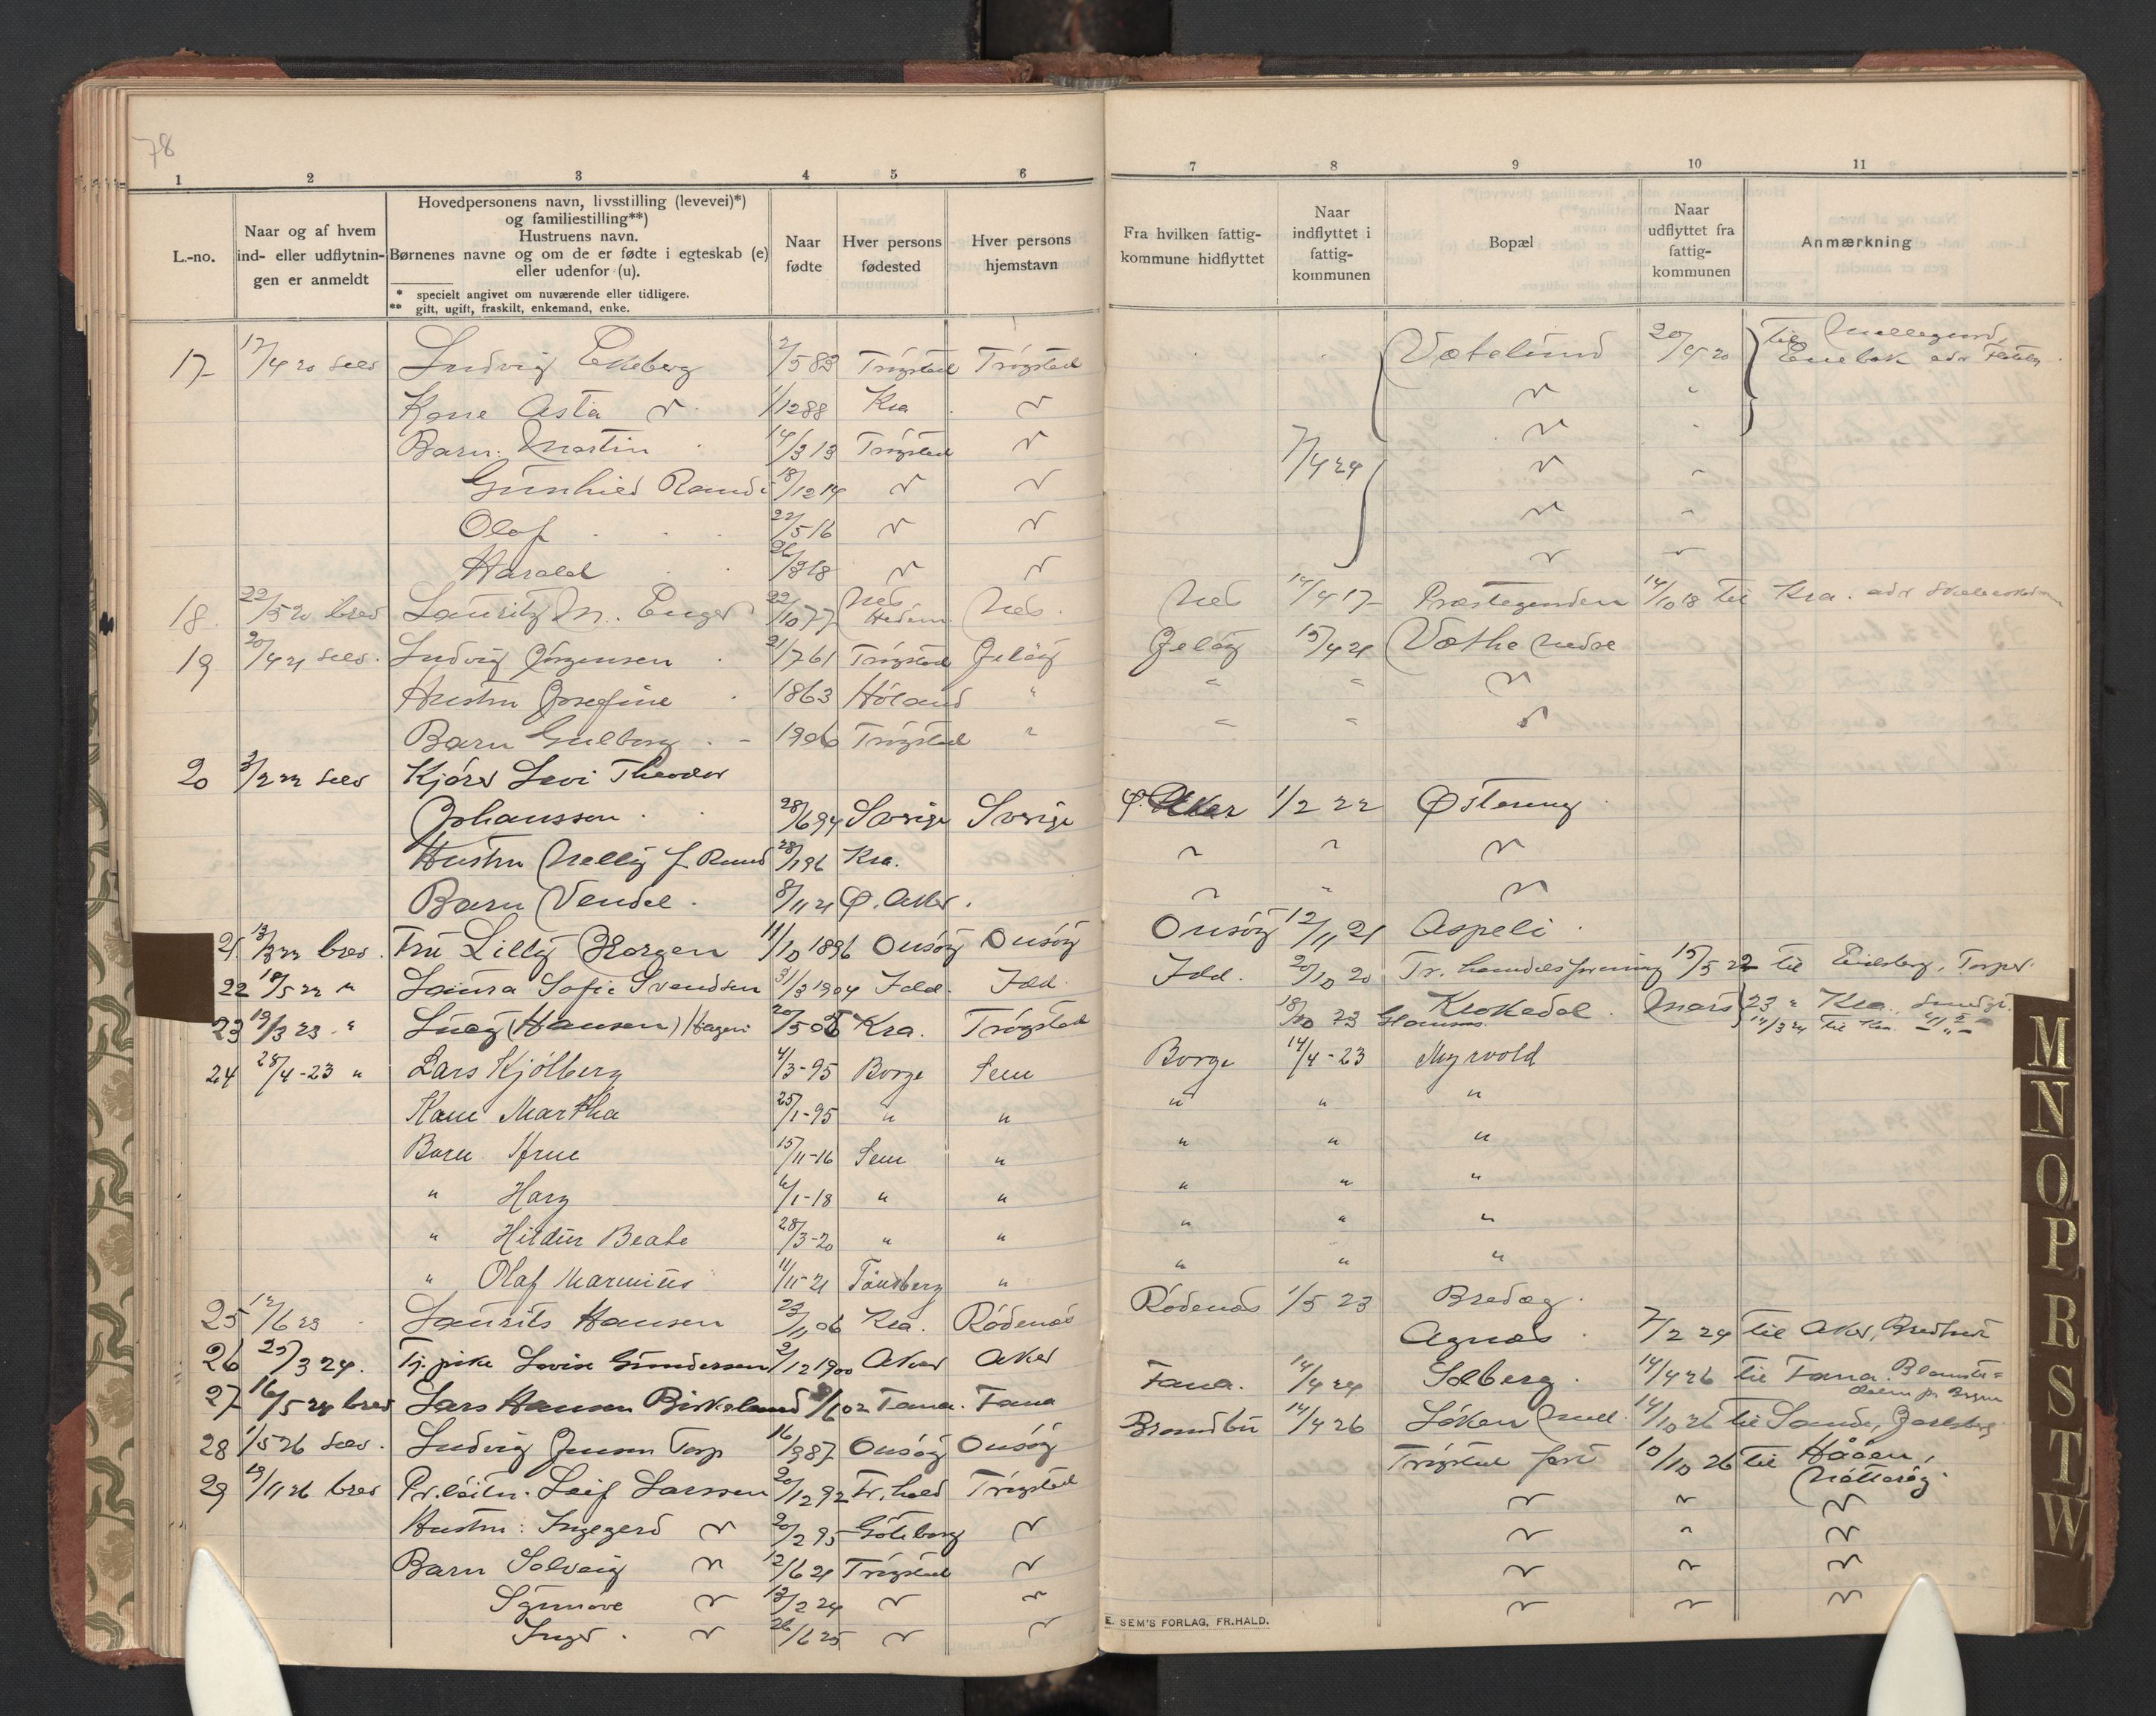 78
1 2 3 4 5 6 7 8 9 10 11
L.-no.
Naar og af hvem ind- eller udflytnin- gen er anmeldt
Hovedpersonens navn, livsstilling (levevei)*)
og familiestilling**)
Hustruens navn.
Børnenes navne og om de er fødte i egteskab (e)
eller udenfor (u).
* specielt angivet om nuværende eller tidligere.
** gift, ugift, fraskilt, enkemand, enke.
Naar fødte
Hver persons fødested
Hver persons hjemstavn
Fra hvilken fattig- kommune hidflyttet
Naar indflyttet i fattig- kommunen
Bopæl
Naar udflyttet fra fattig- kommunen
Anmærkning
17 17/4 20 selv Ludvig Ekeberg 2/5 83 Trøgstad Trøgstad Vætelund 20/4 20 til Enebak adr
Kone Asta " 1/12 88 Kra " "
Barn: Martin 14/3 13 Trøgstad " "
7/4 24
Gunhild Randi 18/12 14 " " "
Olaf 22/5 16 " " "
Harald 26/3 18 " " " "
18 22/5 20 brev Lauritz M. Enger 22/10 77 Nes Hedem. Nes Nes 14/4 17 Præstegaarden 14/10 18 til Kra. adr
19 20/4 21 selv Ludvig Jørgensen 21/7 61 Trøgstad Jeløy Jeløy 15/4 21 Væthe nedre
Hustru Josefine 1863 Høland " " " "
Barn Gulborg 1906 Trøgstad " " " "
20 3/2 22 selv Kjørs Levi Theodor
Johansson 28/6 94 Sverige Sverige Ø. Aker 1/2 22 Østereng
Hustru Nelly f. Ruud 28/1 96 Kra. " " "
Barn Vendel 8/11 21 Ø. Aker. " " "
21 13/3 22 brev Fru Lilly Horgen 11/10 1896 Onsøy Onsøy Onsøy 12/11 21 Aspeli
22 18/5 22 " Laura Sofie Svendsen 31/3 1904 Idd. Idd. Idd. 20/10 20 Tr. handelsforening 15/5 22 til Eidsberg, Torper
23 19/3 23 " Lucy (Hansen) Hagen 20/5 05 Kra. Trøgstad 18/10 23 Krokedal Mars 23 " Kra.
24 28/4-23 " Lars Kjølberg 4/3-95 Borge Sem Borge 14/4-23 Myrvold
Kone Martha 25/1-95 " " " " "
Barn Arne 15/11-16 Sem " " " "
" Hary 6/1-18 " " " " "
" Hildur Beate 28/3-20 " " " " "
" Olaf Marinius 11/11-21 Tønsberg " " " "
25 12/6 23 Laurits Hansen 23/11 06 Kra. Rødenæs Rødenæs 1/5 23 Bredæg
26 25/3 24. Tj. pike Lovise Gundersen 2/12 1900 Aker Aker Agnæs 7/2 24 til Aker,
27 16/5 24 brev Lars Hansen Birkeland 9/6 02 Fana. Fana Fana. 14/4 24 Solberg 14/4 26 til Fana.
28 1/5 26 selv. Ludvig Jensen Torp 16/3 87 Onsøy Onsøy Brandbu 14/4 26 Løken 14/10 26 til Sande, Jarlsberg
29 19/11 26 brev Pr.løitn. Leif Larssen 20/12 92 Fr.hald Trøgstad Trøgstad fort 10/10 26 til Håøen, Nøtterøy
Hustru: Ingegerd " 20/2 95 Göteborg " " " "
Barn Solveig " 12/6 21 Trøgstad " " " "
Synnøve " 13/2 24 " " " " "
Inger " 26/6 25 " " " " "
E. SEM'S FORLAG, FR.HALD.
M
N
O
P
R
S
T
W